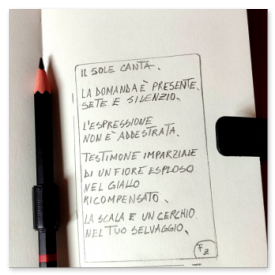 IL SOLE CANTA.
LA DOMANDA È PRESENTE.
SETE E SILENZIO.
L'ESPRESSIONE
NON È ADDESTRATA.
TESTIMONE IMPARZIALE
DI UN FIORE ESPLOSO
NEL GIALLO
RICOMPENSATO.
LA SCALA E UN CERCHIO
NEL TUO SELVAGGIO.